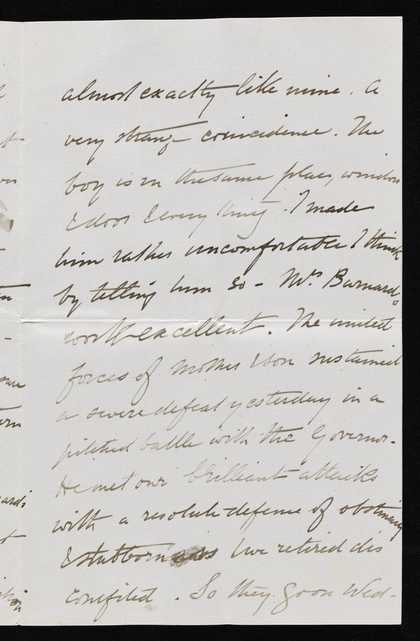 almost exactly like mine. A
very strange coincidence. The
boy is in the same place, window
& door & every thing. I made
him rather uncomfortable I think
by telling him so - Mr. Barnard's
work excellent. The united
forces of Mother & son sustained
a severe defeat yesterday in a
pitched battle with the Governor.
He met our brilliant attacks
with a resolute defense of obstinacy
& stubbornness & we retired dis
comfited. So they go on Wed-